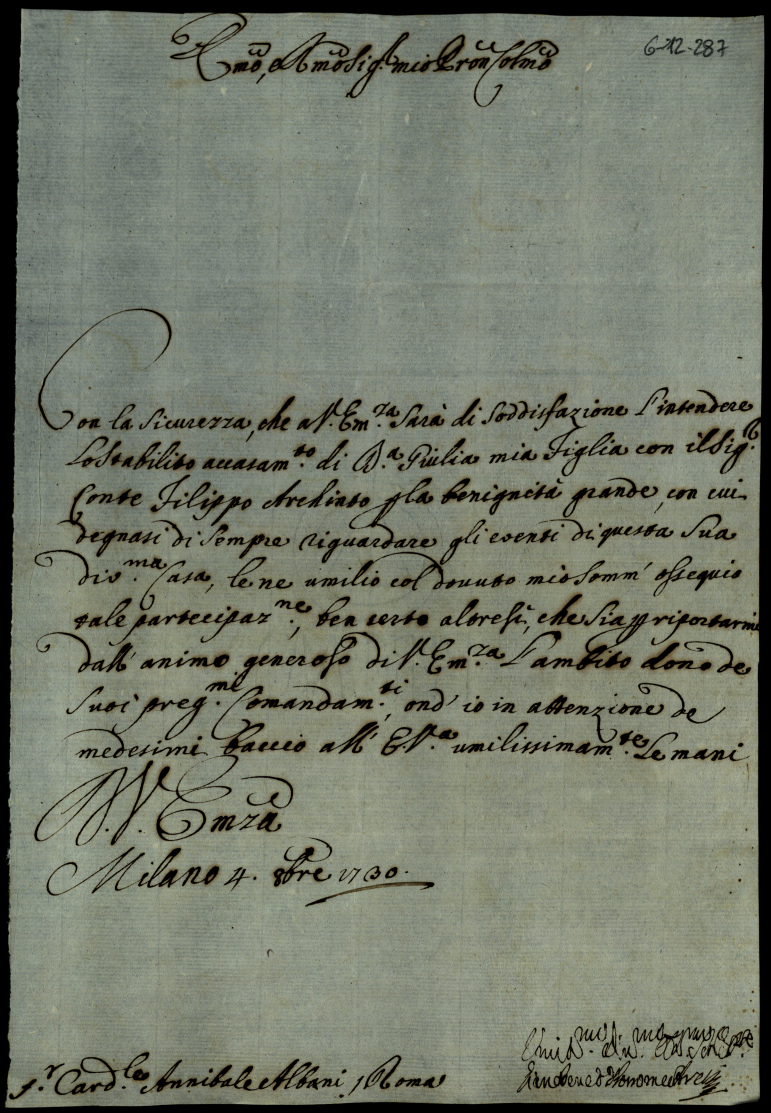 6-12-287
Emo, e Rmo Sig.r mio Pron Colmo
Con la Sicurezza, che a V. Em.za Sarà di Soddisfazione L'intendere
Lo Stabilito accasam.to di D.a Giulia mia Figlia con il Sig.r
Conte Filippo Archinto p la benignità grande, con cui
degnasi di Sempre riguardare gli eventi di questa Sua
div.ma Casa, le ne umilio col dovuto mio Somm' ossequio
tale partecipaz.ne, ben certo altresì, che Sia p riportarmi
dall' animo generoso di V. Em.za L'ambito dono de
Suoi preg.mi Comandam.ti, ond' io in attenzione de
medesimi baccio all' E.V.a umilissimam.te Le mani
D. V. Emza
Milano 4. 8bre 1730.
S.r Card.le Annibale Albani / Roma
Giovanbened.o Borromeo Arese